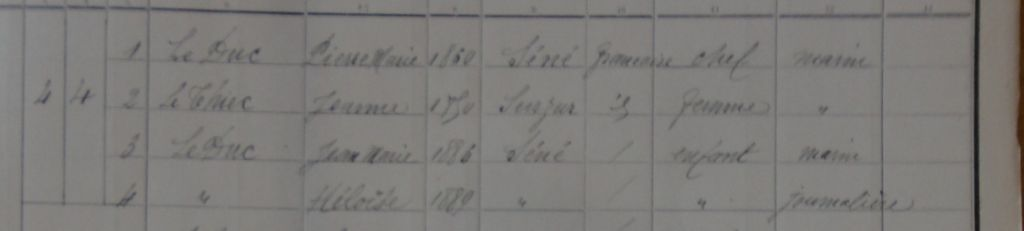 1 Le Duc Pierre Marie 1860 Séné française chef marin
4 4 2 Le Thuc Jeanne 1850 Surzur id femme "
3 Le Duc Jean Marie 1886 Séné / enfant marin
4 " Héloïse 1889 " / " journalière